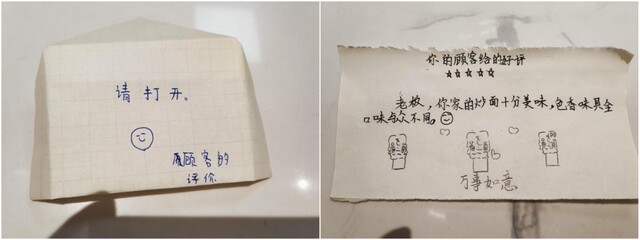 请打开。
顾客的
评价
你的顾客给的好评
☆☆☆☆☆
老板，你家的炒面十分美味，色香味具全
口味与众不同。
万事如意